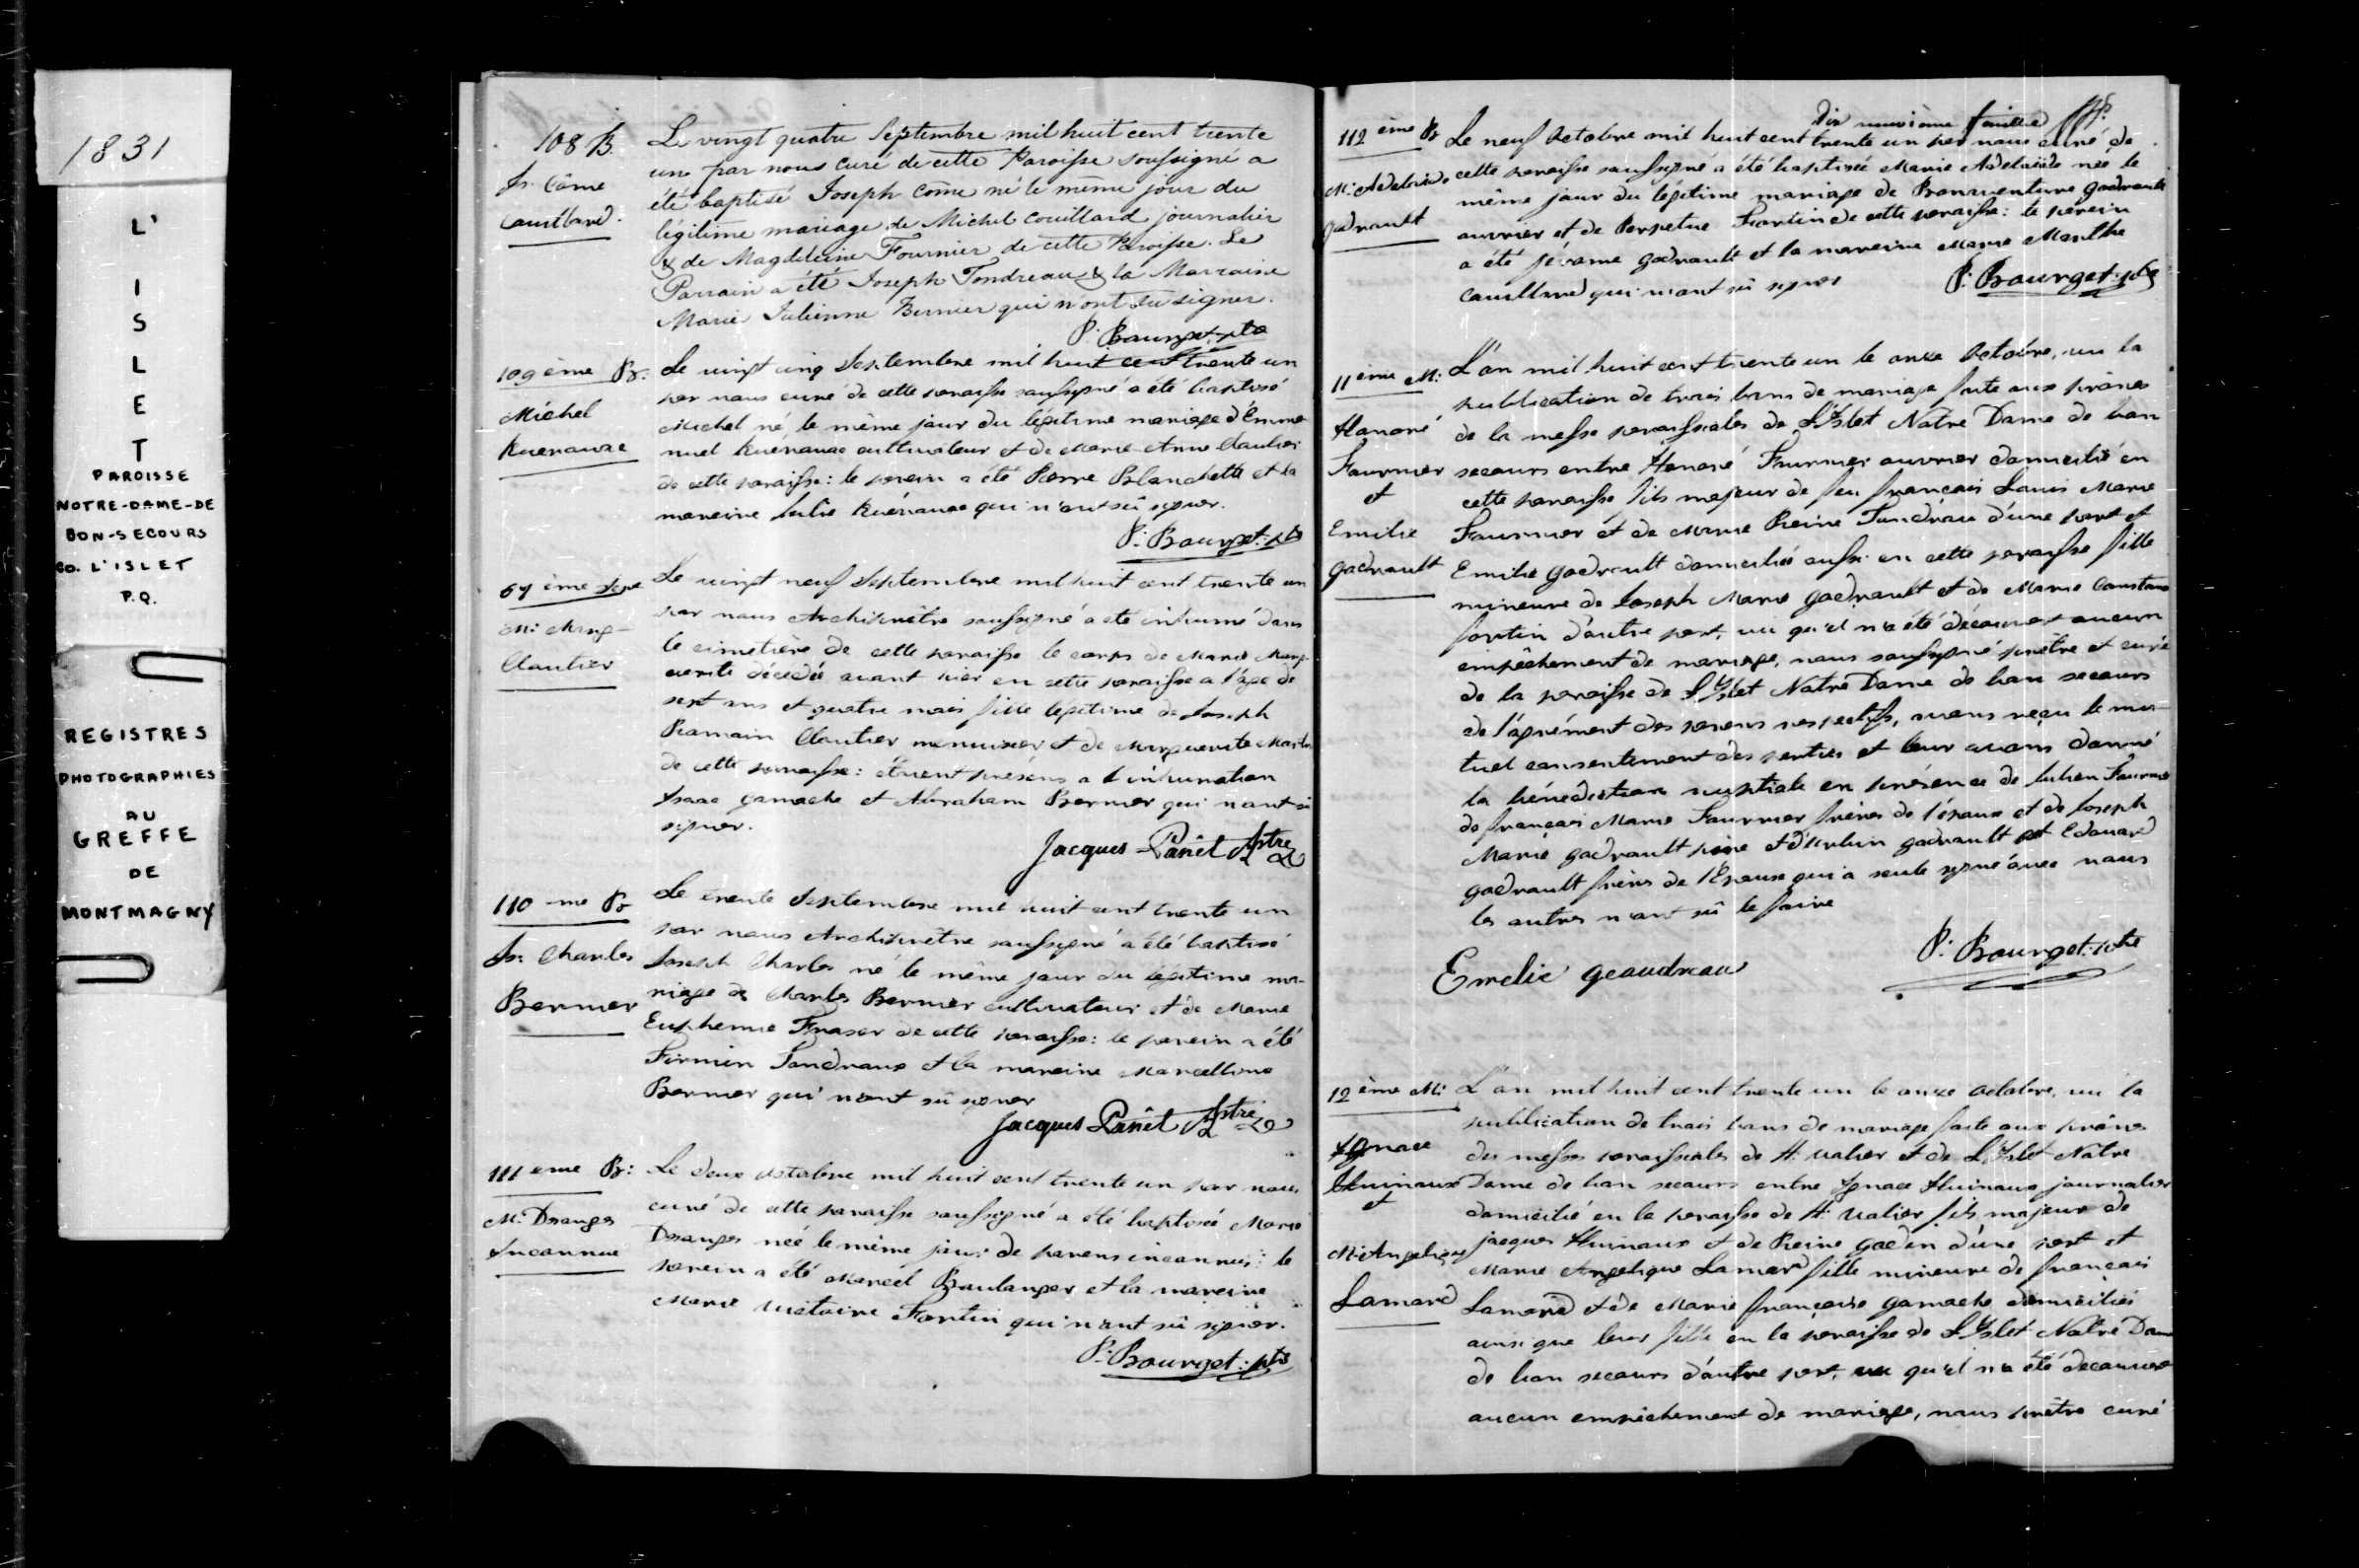 1831
L'
I
S
L
E
T
PAROISSE
NOTRE-DAME-DE
BON-SECOURS
CO. L'ISLET
P.Q.
REGISTRES
PHOTOGRAPHIES
AU
GREFFE
DE
MONTMAGNY
108 B.
Js. Côme
Couillard.
Le vingt quatre Septembre mil huit cent trente
un par nous curé de cette Paroisse soussigné a
été baptisé Joseph Côme né le même jour du
légitime mariage de Michel Couillard journalier
& de Magdeleine Fournier de cette Paroisse. Le
Parrain a été Joseph Tondreau & la Marraine
Marie Julienne Bernier qui n'ont su signer.
P. Bourget ptre
109 ème B.
Michel
Kuérouac
Le vingt cinq Septembre mil huit cent trente un
par nous curé de cette paroisse soussigné a été baptisé
Michel né le même jour du légitime mariage d'Emma
nuel Kuérouac cultivateur et de Marie Anne Cloutier
de cette paroisse: le parein a été Pierre Blanchette et la
mareine Julie Kuérouac qui n'ont sû signer.
P. Bourget ptre
67 ème Sepe
M: Marg-
Cloutier
Le vingt neuf Septembre mil huit cent trente un
par nous Archiprêtre soussigné a été inhumé dans
le cimetière de cette paroisse le corps de Marie Marg-
uerite décédée avant hier en cette paroisse a l'age de
sept ans et quatre mois fille légitime de Joseph
Romain Cloutier menuisier et de Marguerite
de cette paroisse: étoient présens a l'inhumation
Isaac Gamache et Abraham Bernier qui n'ont sû
signer.
Jacques Panet Aptre
110 -me B
Js: Charles
Bernier
Le trente Septembre mil huit cent trente un
par nous Archiprêtre soussigné a été baptisé
Joseph Charles né le même jour du légitime ma-
riage de Charles Bernier cultivateur et de Marie
Euphemie Fraser de cette paroisse: le parein a été
Firmin Tondreau et la mareine Marcelline
Bernier qui n'ont sû signer
Jacques Panet Aptre
111 eme B:
M: Desanges
Inconnue
Le deux octobre mil huit cent trente un par nous
curé de cette paroisse soussigné a été baptisée Marie
Desanges née le même jour de parens inconnus: le
parein a été Marcel Boulanger et la mareine
Marie Victoire Fortin qui n'ont sû signer.
P. Bourget: ptre
Dix neuvième feuillet
112 ème B
M: Adelaïde
Godrault
Le neuf Octobre mil huit cent trente un par nous curé de
cette paroisse soussigné a été baptisée Marie Adelaïde née le
même jour du légitime mariage de Bonaventure Godrault
ouvrier et de Perpetue Fortin de cette paroisse: le parein
a été Jérome Godrault et la mareine Marie Marthe
Couillard qui n'ont sû signer
P. Bourget. ptre
11 ème M:
Honoré
Fournier
et
Emilie
Godrault
L'an mil huit cent trente un le onze Octobre, vu la
publication de trois bans de mariage faite aux prônes
de la messe paroissiales de L'Islet Notre Dame de bon
secours entre Honoré Fournier ouvrier domicilié en
cette paroisse fils majeur de feu françois Louis Marie
Fournier et de Marie Reine Tondreau d'une part et
Emilie Godrault domiciliée aussi en cette paroisse fille
mineure de Joseph Marie Godrault et de Marie Constance
fortin d'autre part, vu qu'il n'a été découvert aucun
empêchement de mariage, nous soussigné prêtre et curé
de la paroisse de L'Islet Notre Dame de bon secours
de l'agrément des parens respectifs, avons reçu le mu-
tuel consentement des parties et leur avons donné
la bénédiction nuptiale en présence de Julien Fournier
de françois Marie Fournier frères de l'époux et de Joseph
Marie Godrault père et d'Urbin Godrault et Edouard
Godrault frères de l'Epouse qui a seule signé avec nous
les autres n'ont sû le faire
Emelie geaudreau
P. Bourget. ptre
12 ème M:
Ignace
Thuinaux
et
M: Angelique
Lamard
L'an mil huit cent trente un le onze octobre, vu la
publication de trois bans de mariage faite aux prônes
des messes paroissiales de St. Valier et de L'Islet Notre
Dame de bon secours entre Ignace Thuinaux journalier
domicilié en la paroisse de St. Valier fils majeur de
jacques Thuinaux et de Reine Godin d'une part et
Marie Angelique Lamard fille mineure de françois
Lamard et de Marie françoise Gamache domiciliés
ainsi que leur fille en la paroisse de L'Islet Notre Dame
de bon secours d'autre part, vu qu'il n'a été découvert
aucun empêchement de mariage, nous prêtre curé